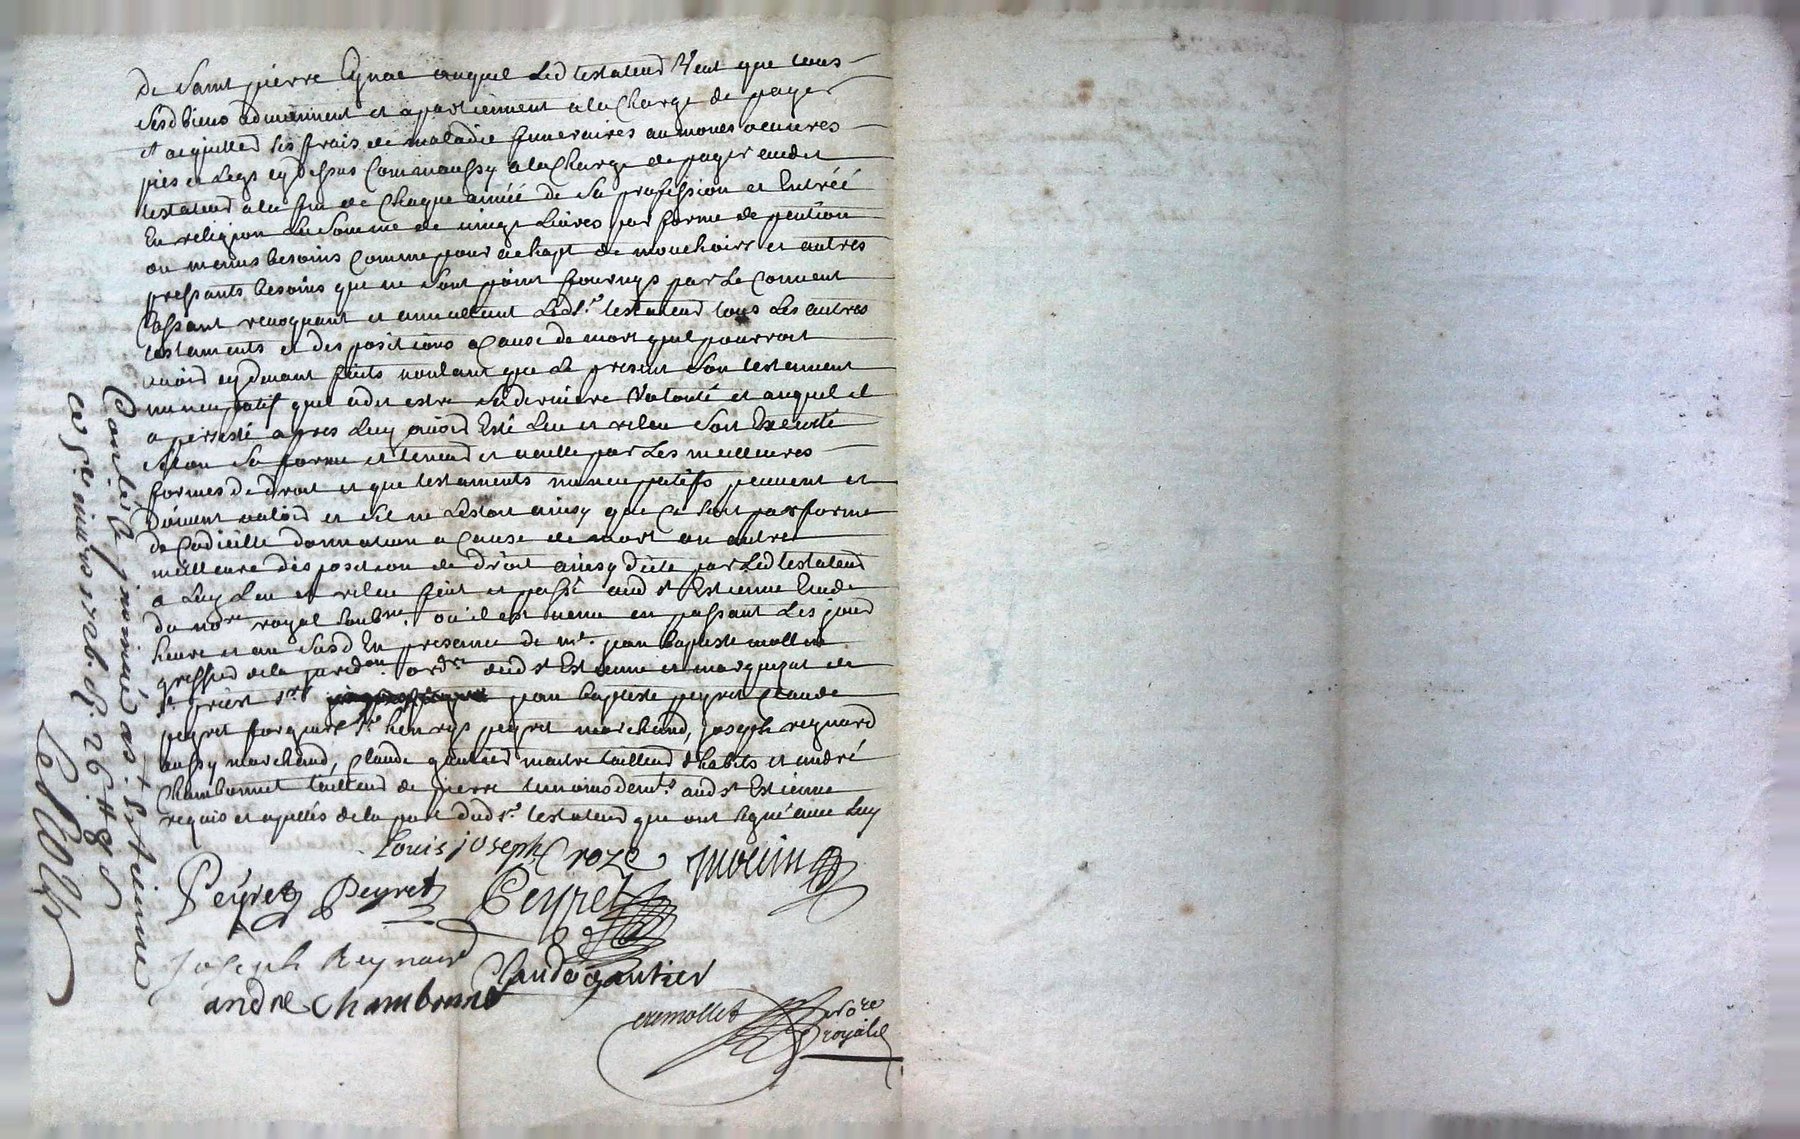 de Saint pierre Eynac auquel led testateur Veut que tous
sesd biens adviennent et apartiennent a la Charge de payer
et acquitter les frais de maladie funeraires aumones oeuvres
pies et legs cy dessus Comm'aussy a la Charge de payer audit
testateur a la fin de Chaque année de Sa profession et Entréé
En religion La Somme de vingt Livres par forme de pention
ou menus besoins Comme pour achapt de mouchoirs et autres
pressants besoins que ne Sont point fournys par Le Convent
Cassant revoquant et annullant Led sr. testateur tous Les autres
testaments et dispositions a Cause de mort quil pourroit
avoir cy devant faits voulant que Le present Son testament
nuncupatif quil a dit estre Sa derniere Volonté et auquel il
a persisté apres Luy avoir Esté Leu et releu Soit Executé
Selon Sa forme et teneur et vaille par Les meilleures
formes de droit et que testaments nuncupatifs peuvent et
doivent valoir et Sil ne Lestoit ainsy que Ce Soit par forme
de Codicille donnation a Cause de mort ou autre
meilleure disposition de droit ainsy dicté par Led testateur
a Luy Leu et releu fait et passé aud st Estienne Etude
du nore royal Soubne. ou il est venu en passant Les jour
heure et an Susd En presence de me. jean baptiste mollin
greffier de la juredon. ordre dud st Estienne et marquizat de
st priest sr. jean baptiste peyret Claude
peyret sr henrys peyret marchand, joseph reynard
aussy marchand, Claude gautier maitre tailleur d'habits et andré
Chambonnet tailleur de pierre temoins demts. aud st Estienne
requis et apellés de la part dud sr. testateur que ont Signé avec Luy
Louis joseph Croze Molin
Peyret Peyret Peyret
Joseph Reynard
Claude gautier
andre Chambonnet
nore
royal
Conlé & inciné a St. Etienne
ce 5e. mars 1726.